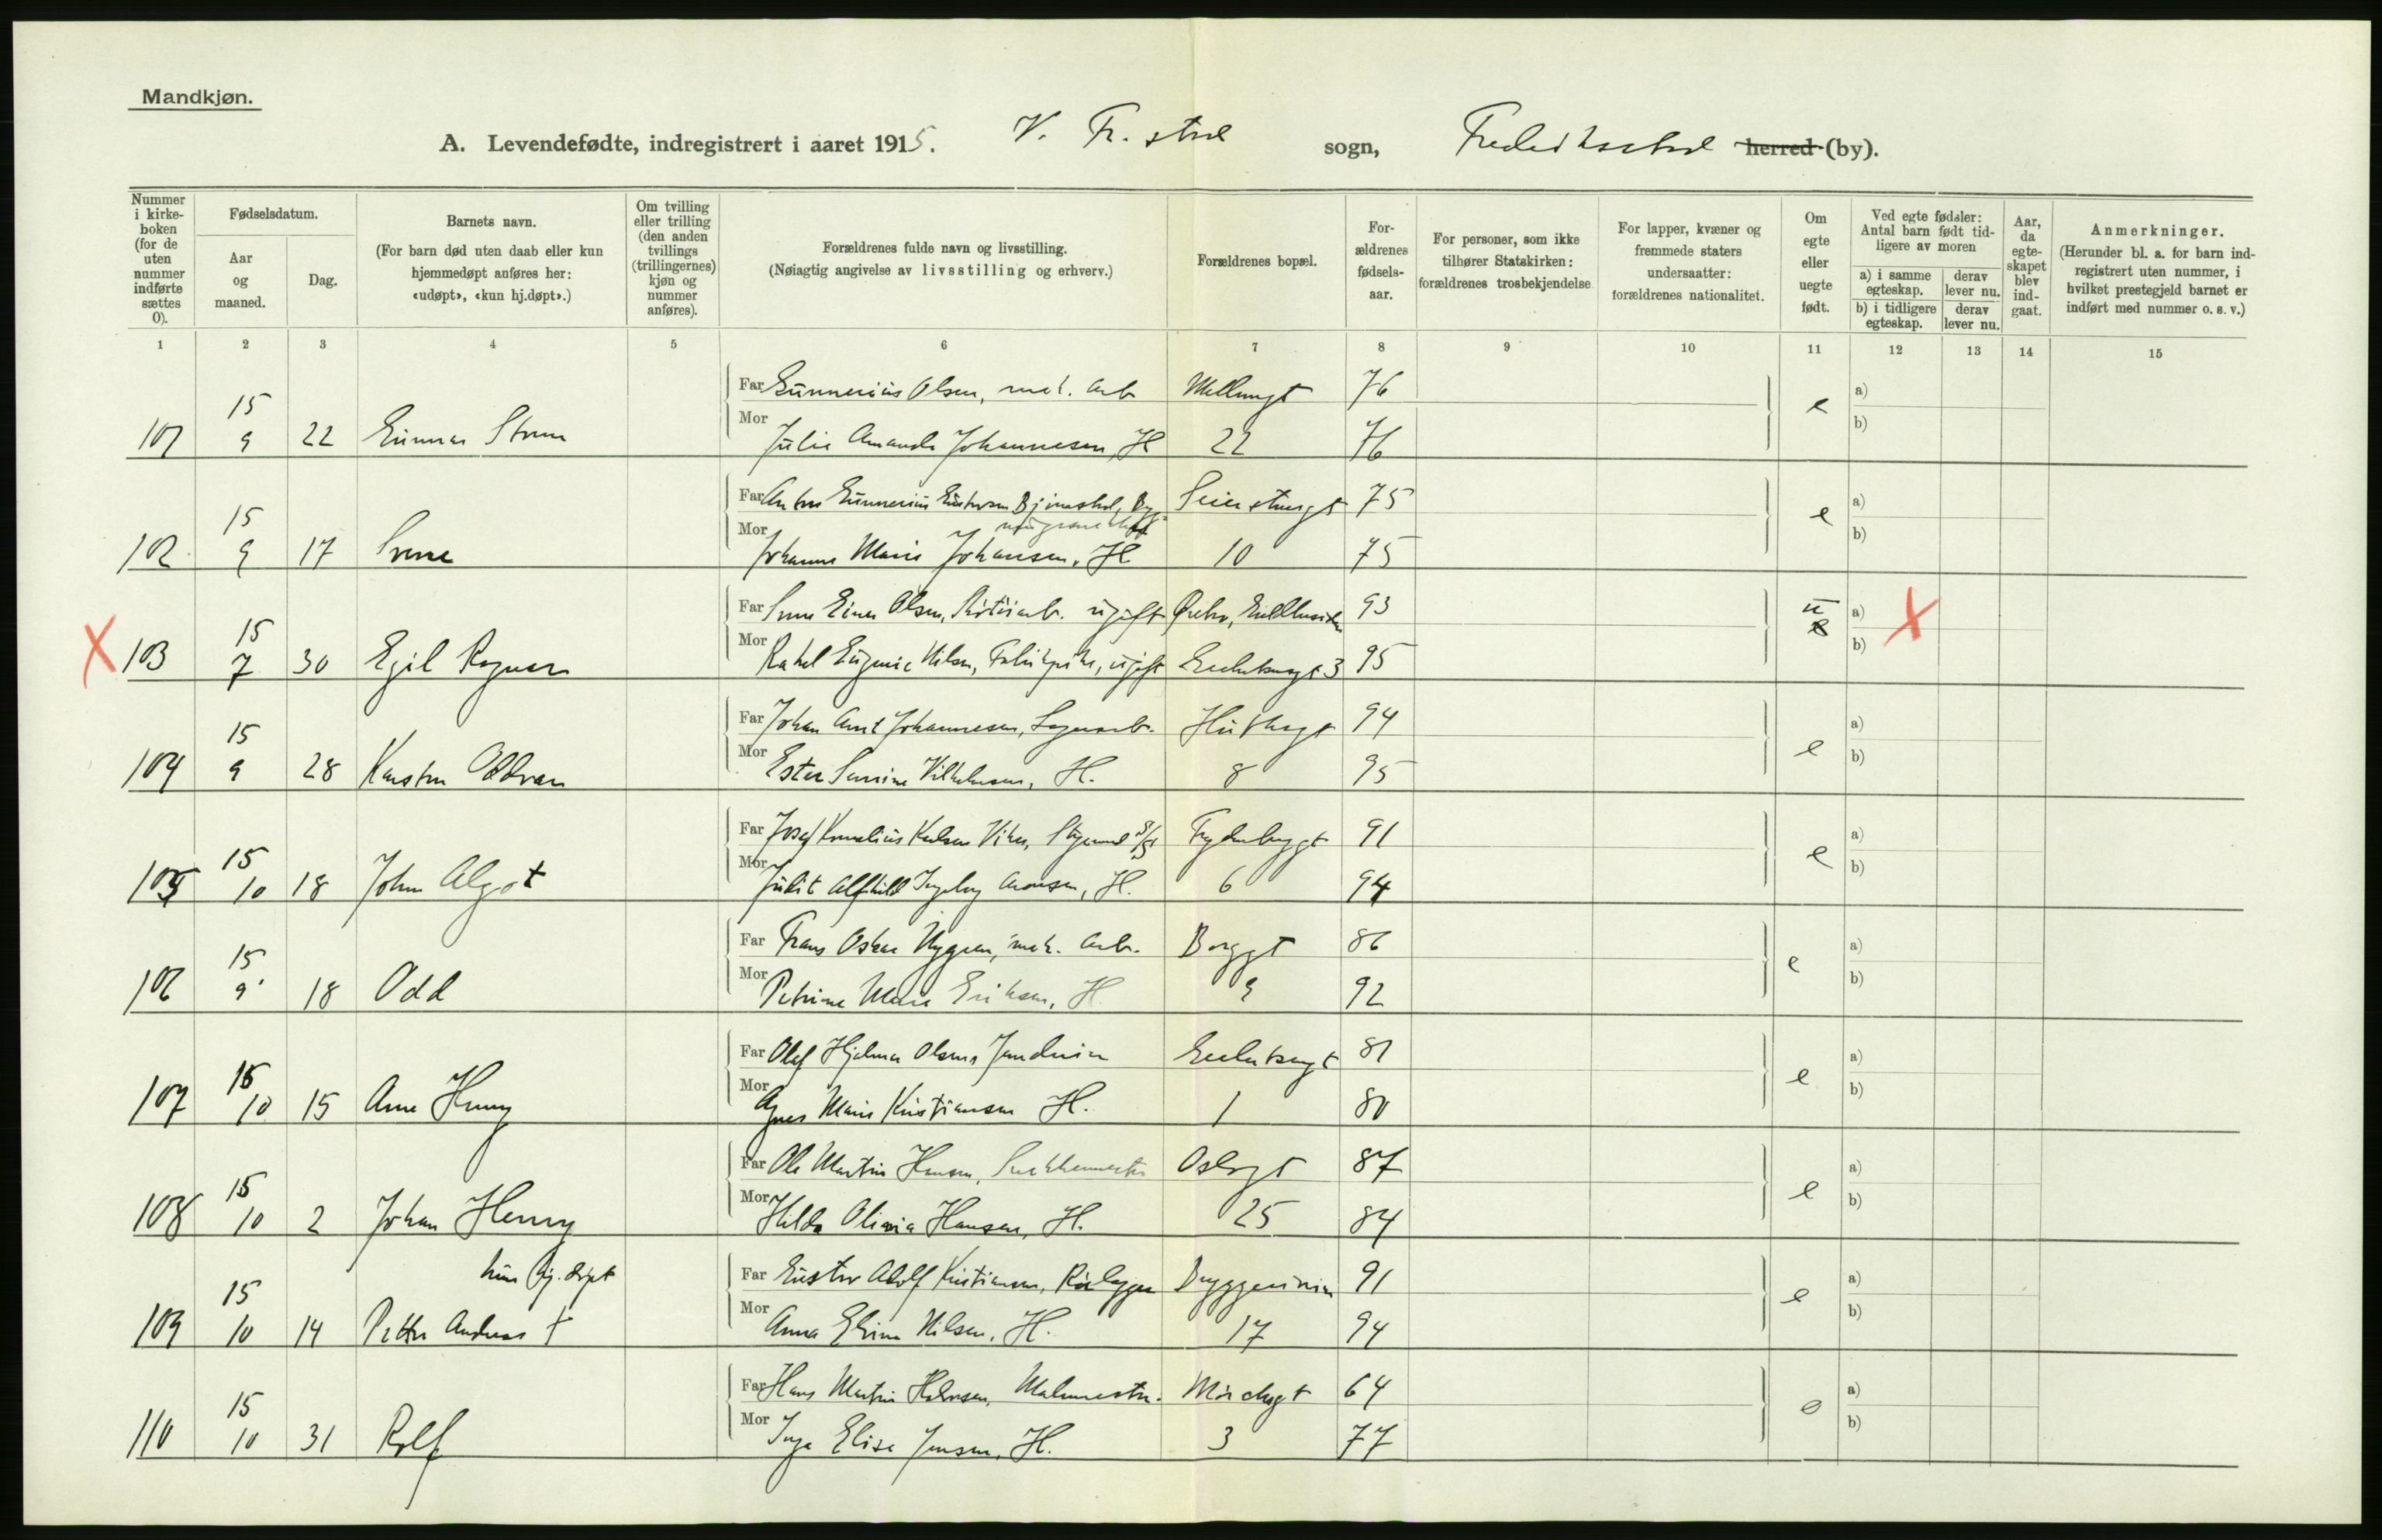 Mandkjøn.
A. Levendefødte, indregistrert i aaret 1915. V. Fr.stad sogn, Fredrikstad herred (by).
Nummer i kirkeboken (for de uten nummer indførte sættes 0).
Fødselsdatum.
Aar og maaned.
Dag.
Barnets navn.
(For barn død uten daab eller kun hjemmedøpt anføres her: «udøpt», «kun hj.døpt».)
Om tvilling eller trilling (den anden tvillings (trillingernes) kjøn og nummer anføres).
Forældrenes fulde navn og livsstilling.
(Nøiagtig angivelse av livsstilling og erhverv.)
Forældrenes bopæl.
Forældrenes fødselsaar.
For personer, som ikke tilhører Statskirken: forældrenes trosbekjendelse
For lapper, kvæner og fremmede staters undersaatter: forældrenes nationalitet.
Om egte eller uegte født.
Ved egte fødsler: Antal barn født tidligere av moren
a) i samme egteskap. derav lever nu.
b) i tidligere egteskap. derav lever nu.
Aar, da egteskapet blev indgaat.
Anmerkninger.
(Herunder bl. a. for barn indregistrert uten nummer, i hvilket prestegjeld barnet er indført med nummer o. s. v.)
1 2 3 4 5 6 7 8 9 10 11 12 13 14 15
Far Gunnerius Olsen, mek. Arb 76 a)
101 15 9 22 Gunnar Mor Julie Amanda Johannesen, H 22 76 e b)
Far Anton Gunnerius Seierstensgt 75 a)
102 15 9 17 Sverre Mor Johanne Marie Johansen, H 10 75 e b)
Far Einar Olsen, ugift 93 u a) X
X 103 15 7 30 Egil Ragnar Mor Rakel Eugenie Nilsen, Fabrikpike, ugift 3 95 e b)
Far Johan Arnt Johannesen, 94 a)
104 15 9 28 Karsten Oddvar Mor Ester Vilhelmsen, H. 8 95 e b)
Far Josef Kornelius Karlsen Frydenberggt 91 a)
105 15 10 18 John Algot Mor Judit Alfhild Ingeborg Aronsen, H. 6 94 e b)
Far Frans Oskar Nygren, mek. Arb. Borggt 86 a)
106 15 9 18 Odd Mor Petrine Marie Eriksen, H 9 92 e b)
Far Olaf Hjalmar Olsen 81 a)
107 15 10 15 Arne Henry Mor Agnes Marie Kristiansen H. 1 80 e b)
Far Ole Martin Hansen, Oslogt 87 a)
108 15 10 2 Johan Henry Mor Hilda Olivia Hansen, H. 25 84 e b)
kun hj. døpt Far Gustav Adolf Kristiansen, Rørlegger 91 a)
109 15 10 14 Petter Andreas † Mor Anna Elvine Nilsen, H. 17 94 e b)
Far Hans Martin Halvorsen, Malermester. 64 a)
110 15 10 31 Rolf Mor Inga Elise Jensen, H. 3 77 e b)